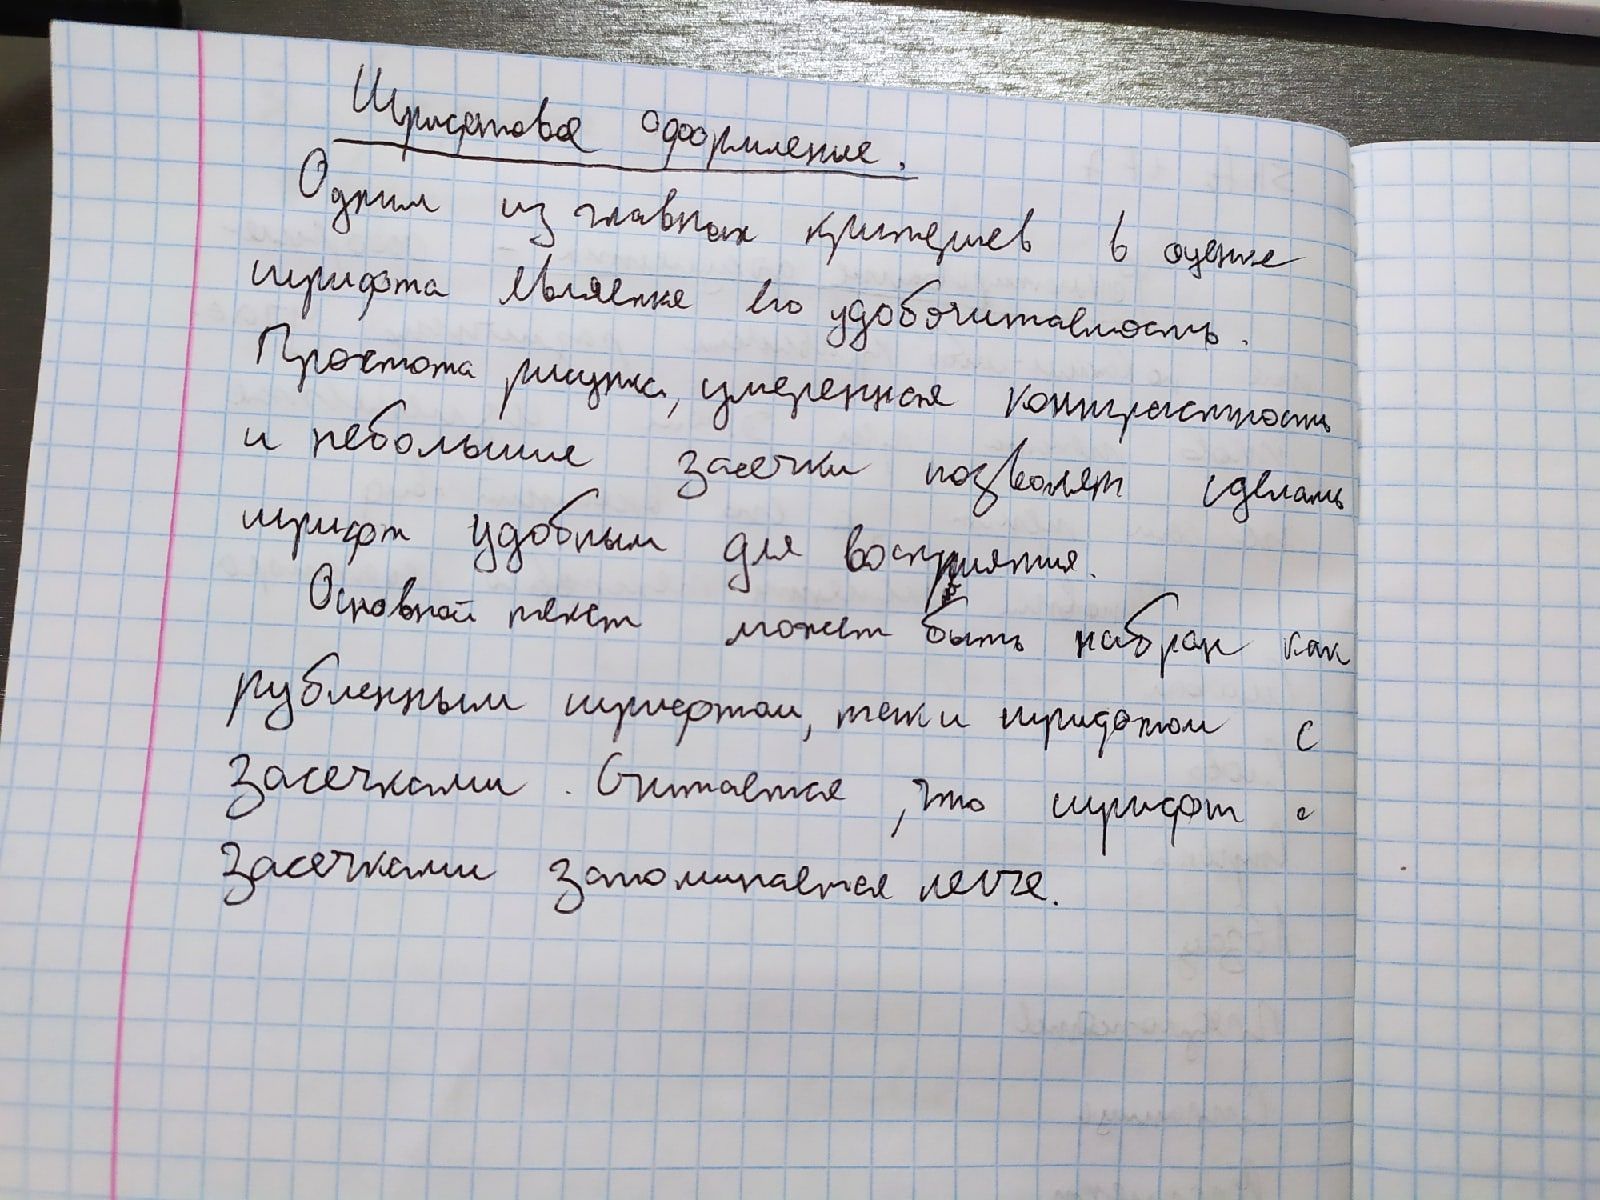 Шрифтовое оформление.
Одним из главных критериев в оценке
шрифта является его удобочитаемость.
Простота рисунка, умеренная контрастность
и небольшие засечки позволят сделать
шрифт удобным для восприятия.
Основной текст может быть набран как
рубленным шрифтом, так и шрифтом с
засечками. Считается, что шрифт с
засечками запоминается легче.